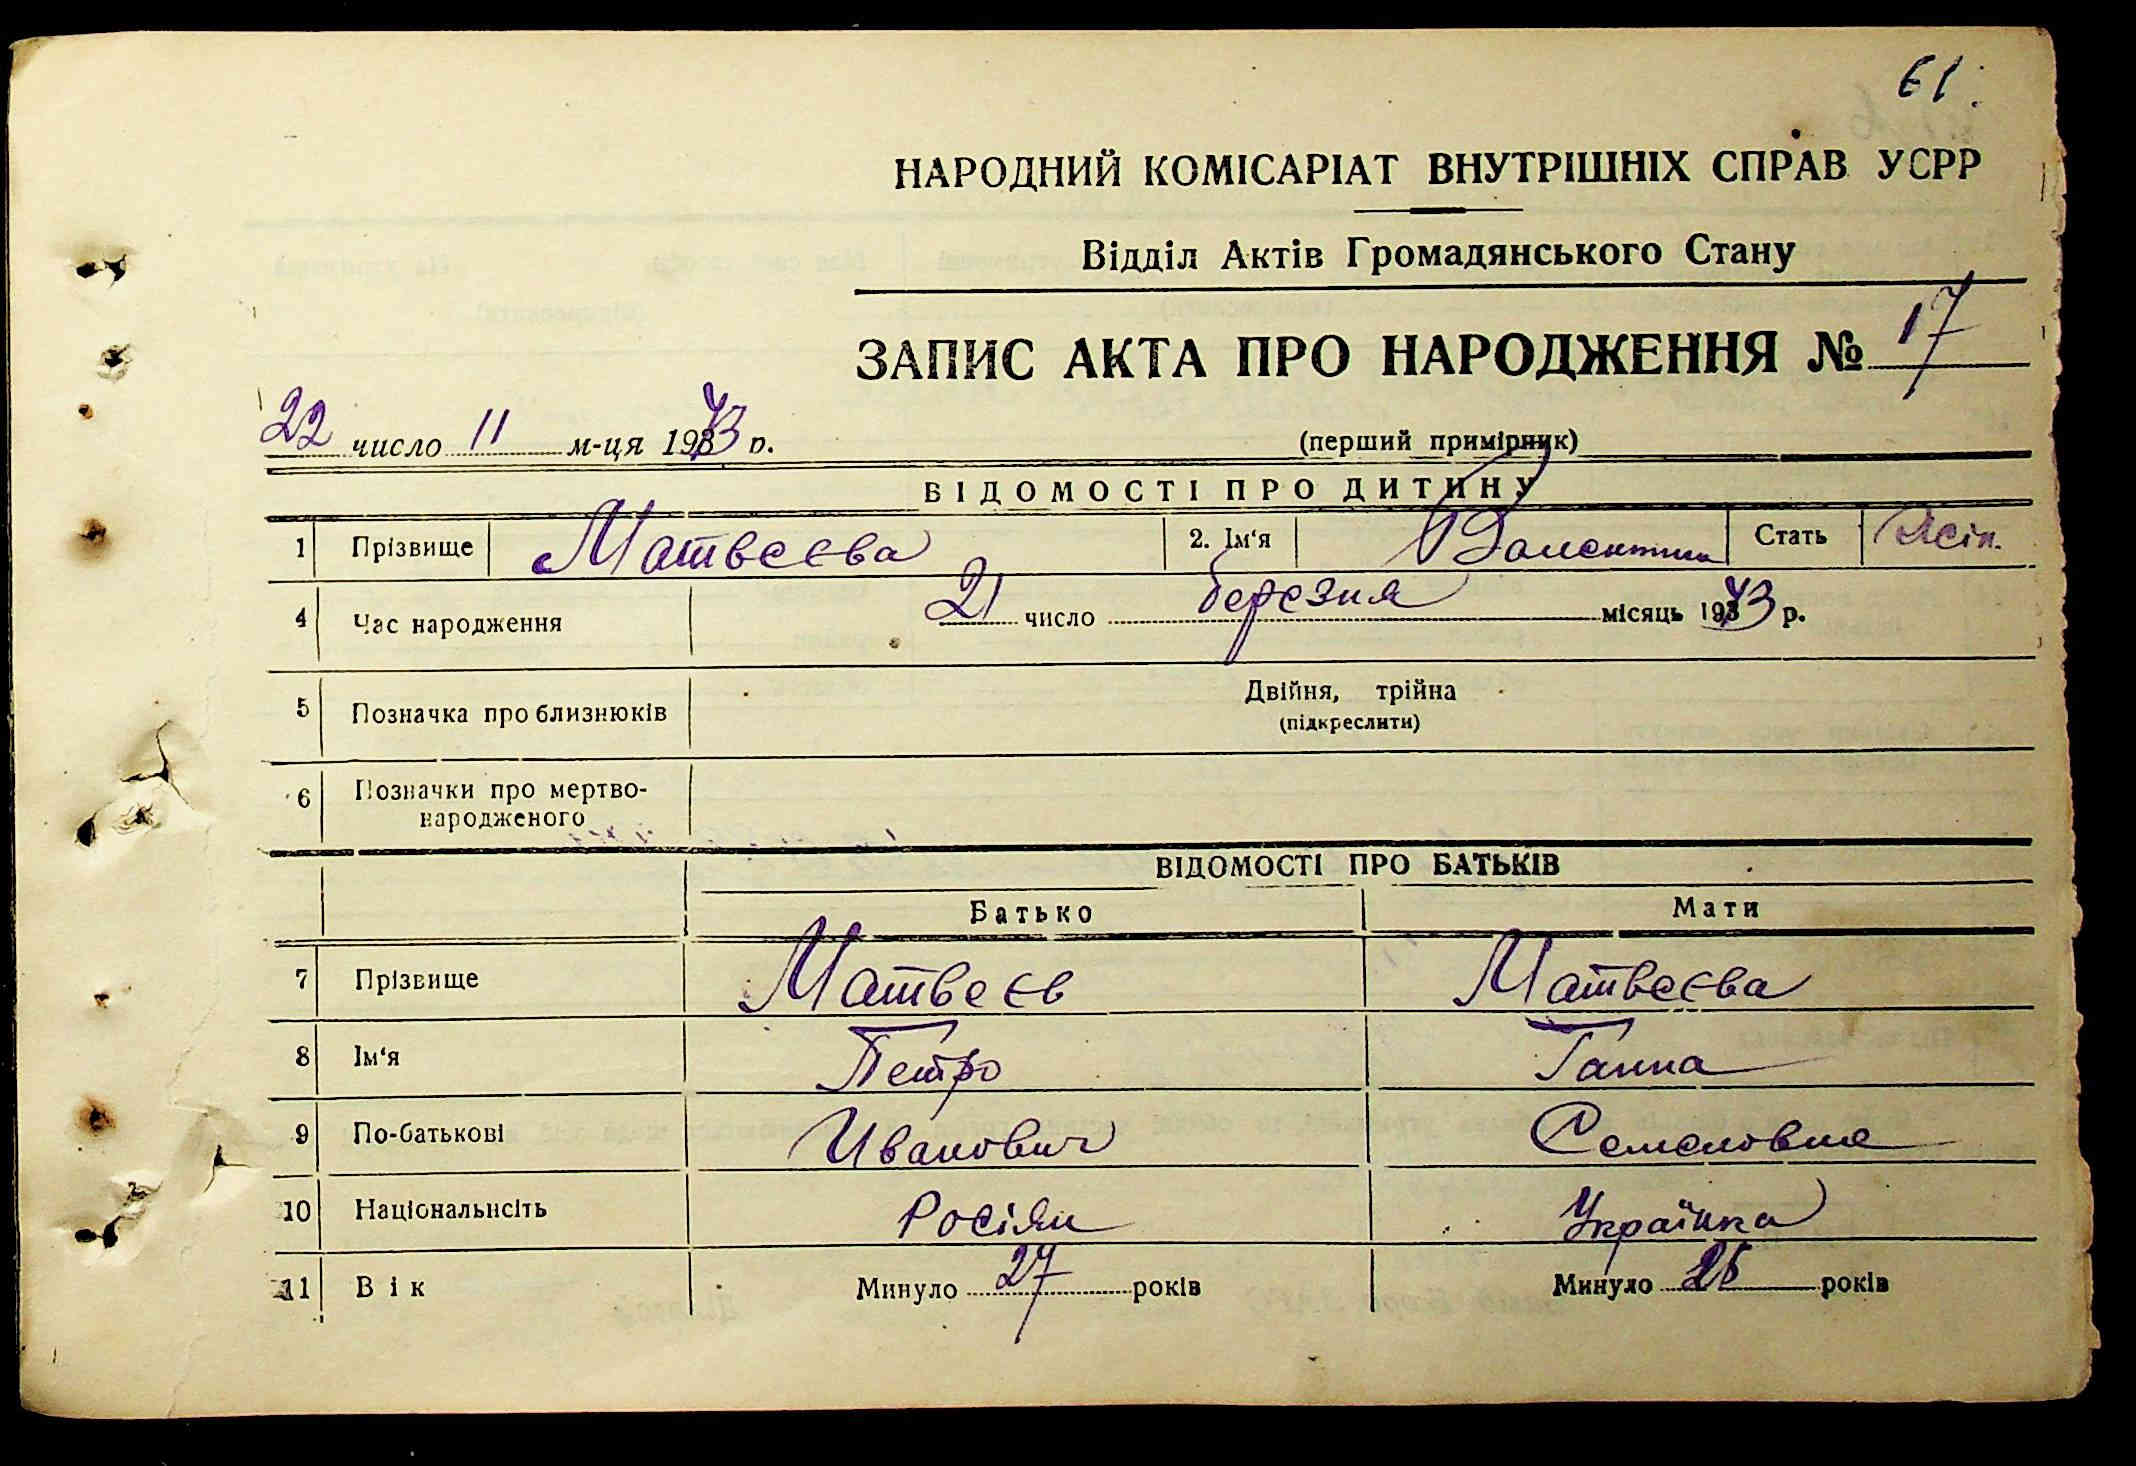 61.
НАРОДНИЙ КОМІСАРІАТ ВНУТРІШНІХ СПРАВ УСРР
Відділ Актів Громадянського Стану
ЗАПИС АКТА ПРО НАРОДЖЕННЯ № 17
22 число 11 м-ця 1943 р. (перший примірник)
ВІДОМОСТІ ПРО ДИТИНУ
1 Прізвище Матвєєва 2. Ім‘я Валентина Стать Жін.
4 Час народження 21 число березня місяць 1943 р.
5 Позначка про близнюків Двійня, трійна
(підкреслити)
6 Позначки про мертво-
народженого
ВІДОМОСТІ ПРО БАТЬКІВ
Батько Мати
7 Прізвище Матвеєв Матвеєва
8 Ім‘я Петро Ганна
9 По-батькові Иванович Семеновна
10 Національнсіть Росіян Українка
11 Вік Минуло 27 років Минуло років